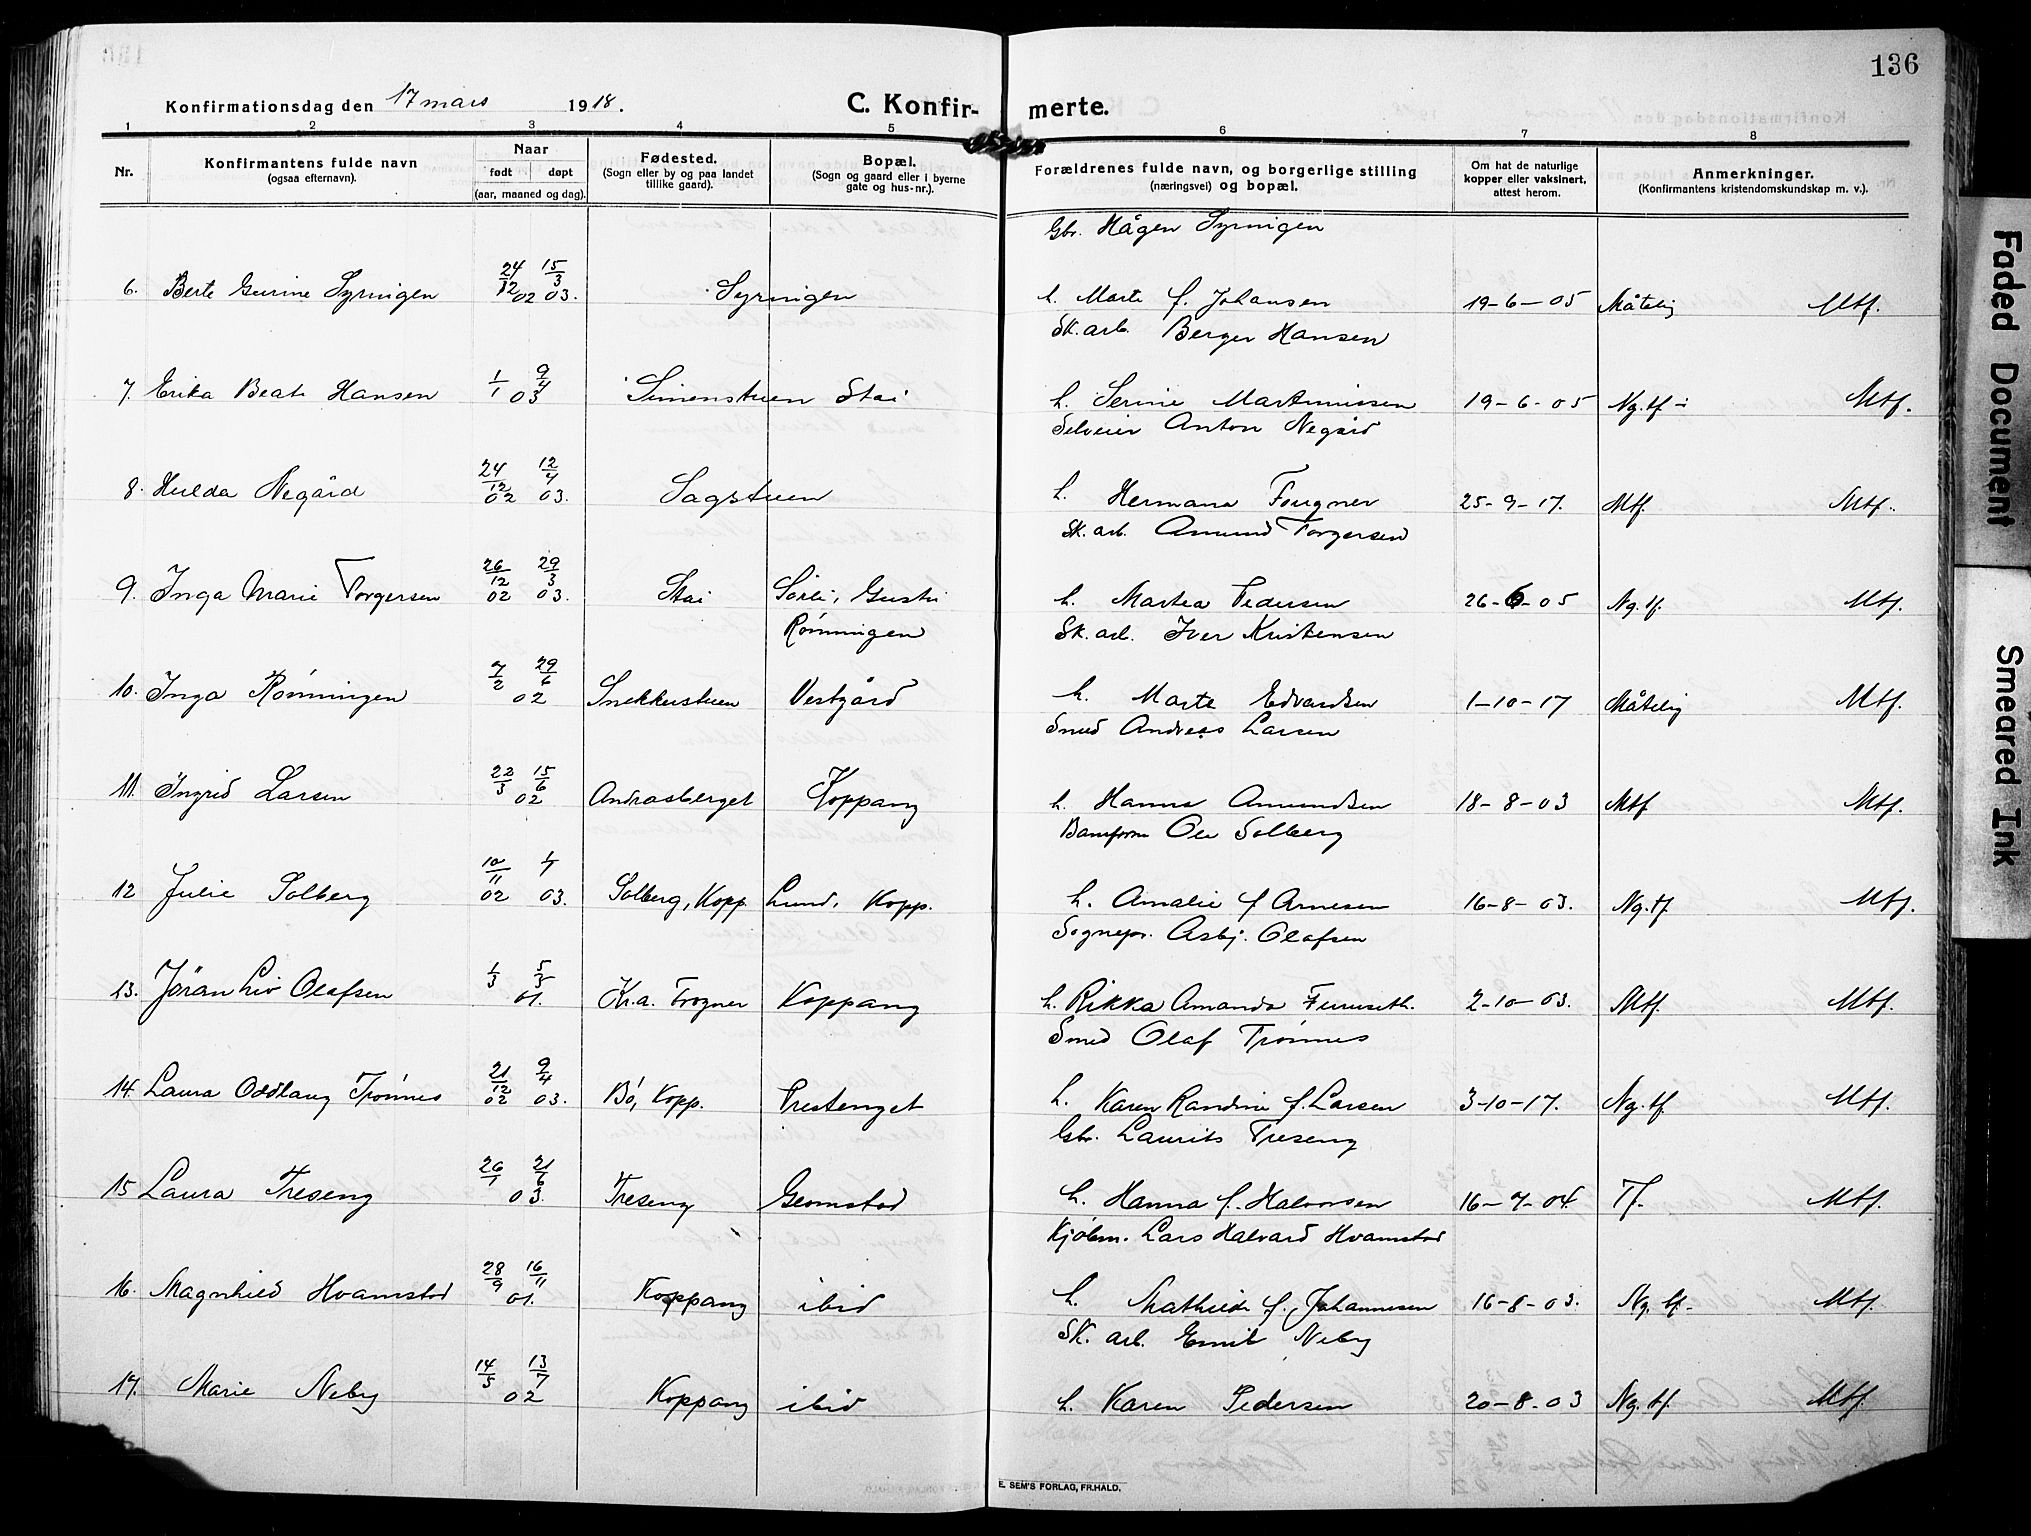 136
Konfirmationsdag den 17 mars 1918.
C. Konfir- merte.
1 2 3 4 5 6 7 8
Nr.
Konfirmantens fulde navn
(ogsaa efternavn).
Naar
født døpt
(aar, maaned og dag).
Fødested.
(Sogn eller by og paa landet
tillike gaard).
Bopæl.
(Sogn og gaard eller i byerne
gate og hus-nr.).
Forældrenes fulde navn, og borgerlige stilling
(næringsvei) og bopæl.
Om hat de naturlige
kopper eller vaksinert,
attest herom.
Anmerkninger.
(Konfirmantens kristendomskundskap m. v.).
Gbr. Hågen Syringen
6. Berte Gurine Syringen 24/12 02 15/3 03. Syringen h. Marte f. Johansen 19-6-05 Måtelig Mtf.
Sk. arb. Berger Hansen
7. Erika Beate Hansen 1/1 9/4 03 Simenstuen Stai h. Serine Martinussen 19-6-05 Ng. tf - Mtf.
Selveier Anton Negård
8. Hulda Negård 24/12 02 12/4 03. Sagstuen h. Hermana Fougner 25-9-17. Mtf. Mtf.
Sk. arb. Amund Torgersen
9. Inga Marie Torgersen 26/12 02 29/3 03. Stai Sørli, h. Martea Pedersen 26-6-05 Ng. tf. Mtf.
Rønningen
Sk. arb. Iver Kristensen
10. Inga Rønningen 7/2 29/6 02 Snekkerstuen Vestgård h. Marte Edvardsen 1-10-17 Måtelig Mtf.
Smed Andreas Larsen
11. Ingrid Larsen 22/3 15/6 02 Andrasberget Koppang h. Hanna Amundsen 18-8-03 Mtf Mtf.
Baneform Ole Solberg
12 Julie Solberg 10/11 02 1/7 03. Solberg, Kopp Lund, Kopp. h. Amalie f Arnesen 16-8-03. Ng. tf. Mtf.
Sognepr. Asbj. Olafsen
13. Jøran Liv Olafsen 1/3 5/5 01. Kr.a. Frogner Koppang h. Rikka Amanda Furuseth. 2-10-03. Mtf. Mtf.
Smed Olaf Trønnes
14. Laura Oddlaug Trønnes 21/12 02 9/4 03. Bø, Kopp. Prestenget h. Karen Randine f. Larsen 3-10-17. Ng. tf. Mtf.
Gbr. Laurits Treseng
15 Laura Treseng 26/1 21/6 03. Treseng Gromstad h. Hanna f. Halvorsen 16-7-04. Tf. Mtf.
Kjøbm. Lars Halvard Hvamstad
16. Magnhild Hvamstad 28/9 16/11 01. Koppang ibid h. Mathilde f. Johannesen 16-8-03. Ng. tf. Mtf.
Sk. arb. Emil Neby
17. Marie Neby 14/5 13/7 02 Koppang ibid h. Karen Pedersen 20-8-03 Ng. tf. Mtf.
E. SEM'S FORLAG, FR.HALD.
Faded Document
Smeared Ink